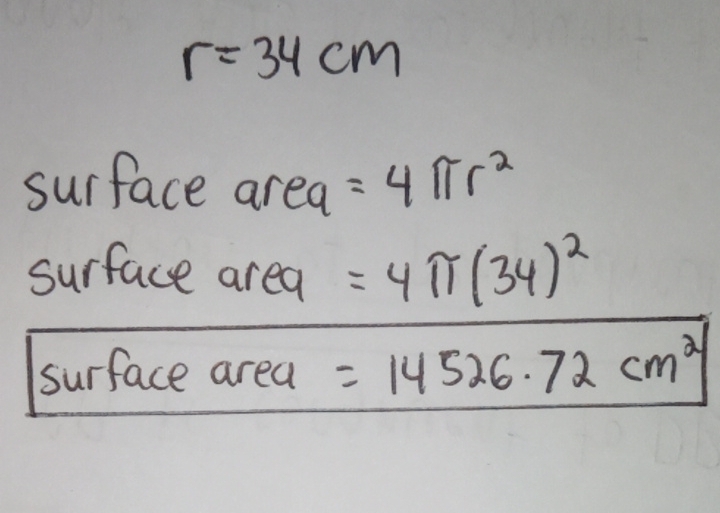 r = 34 cm
surface area = 4 πr²
surface area = 4 π(34)²
surface area = 14526.72 cm²